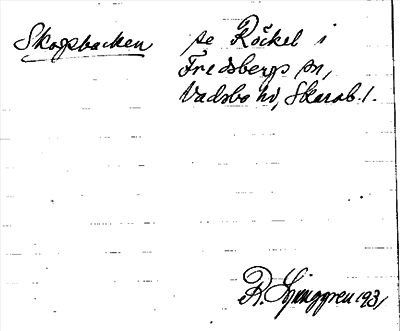 Skogsbacken se Röckel i
Fredsbergs sn,
Vadsbo hd, Skarab. l.
R. Ljunggren 1931